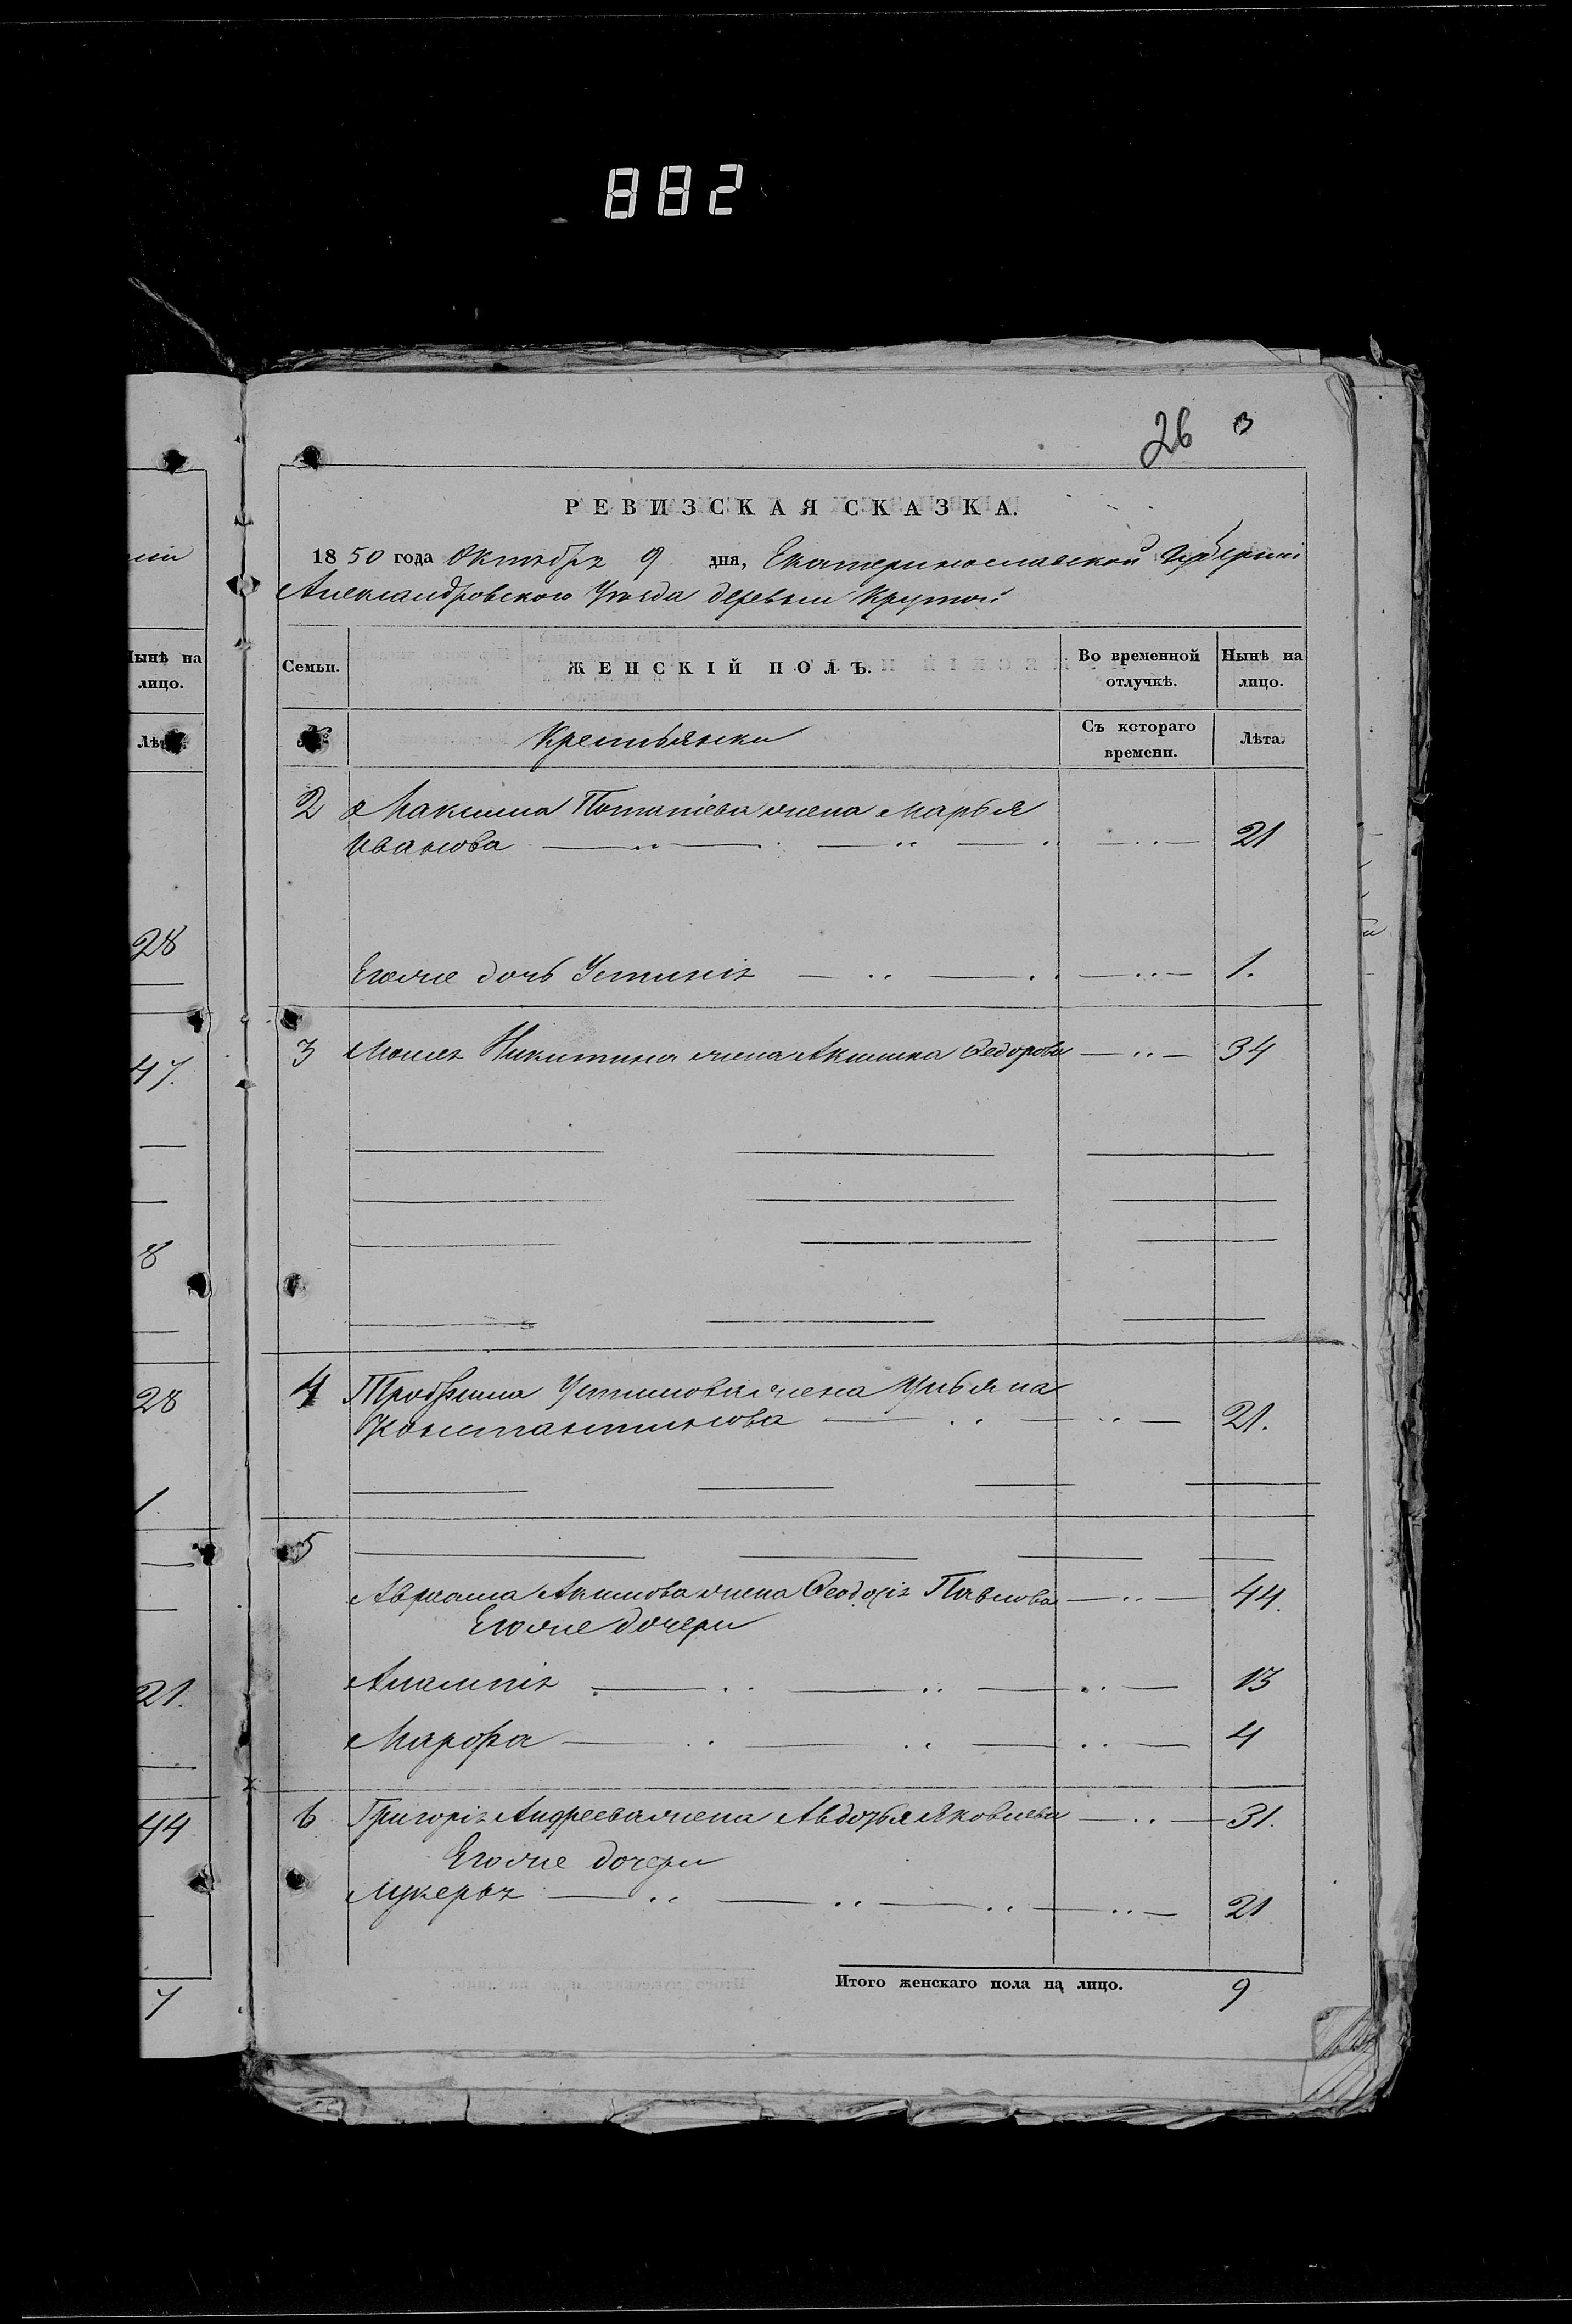 882
26 3
РЕВИЗСКАЯ СКАЗКА.
1850 года Октября 9 дня, Екатеринославской Губерніи
Александровского Уезда деревни Крутой
Нынѣ на лицо.
Лѣта.
28
47.
8
28
1.
21.
44
7
Семьи. ЖЕНСКІЙ ПОЛЪ. Во временной отлучкѣ. Нынѣ на лицо.
№ Крестьянки Съ котораго времени. Лѣта.
2 Максима Потапіева жена Марья
Иванова 21
Егоже дочь Устинія 1.
3 Моисея Никитина жена Акилина Федорова 34
4 Трофима Устинова жена Ульяна
Константинова 21.
5
Авраама Акимова жена Феодосія Павлова 44.
Егоже дочери
13
Марфа 4
6 Григорія Андреева жена Авдотья Яковлева 31.
Егоже дочери
Лукерья 21
Итого женскаго пола на лицо. 9